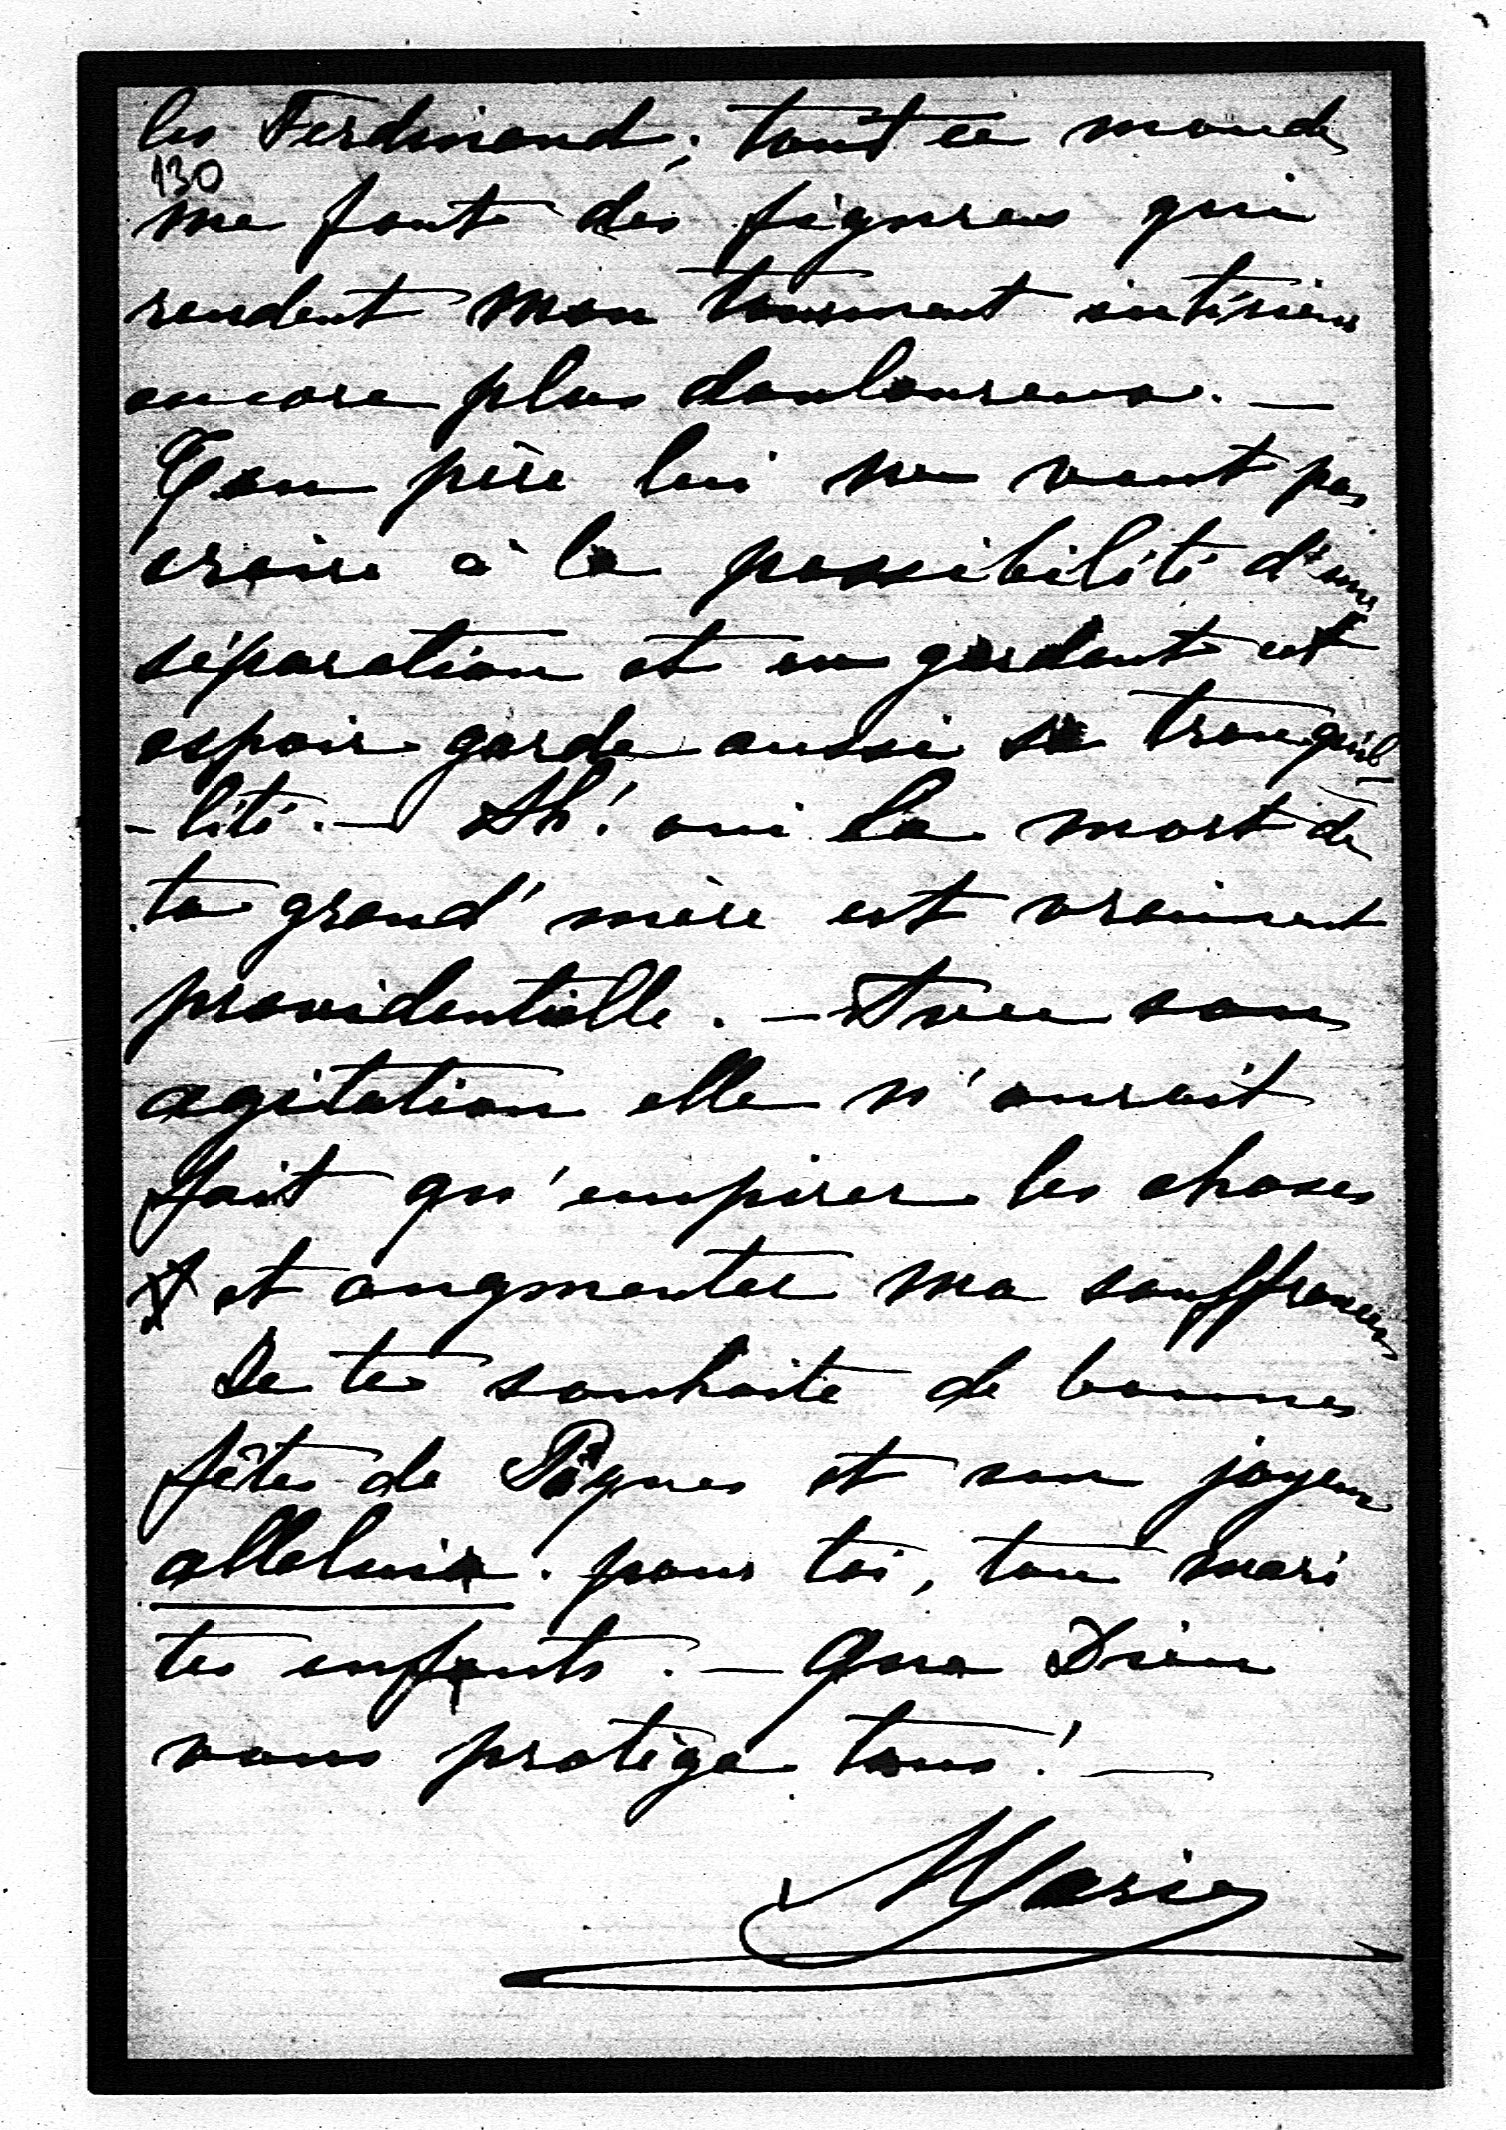 les Ferdinand; tout ce monde
130
me font des figures qui
rendent mon tourment intérieur
encore plus douloureux. —
Ton père lui ne veut pas
croire à la possibilité d'une
séparation et en gardant cet
espoir garde aussi sa tranquil-
-lité. — Ah! oui la mort de
ta grand'mère est vraiment
providentielle. — Avec son
agitation elle n'aurait
fait qu'empirer les choses
et augmenter ma souffrance
Je te souhaite de bonnes
fêtes de Pâques et un joyeux
alleluia. pour toi, ton mari
tes enfants. — Que Dieu
vous protège tous! —
Marie